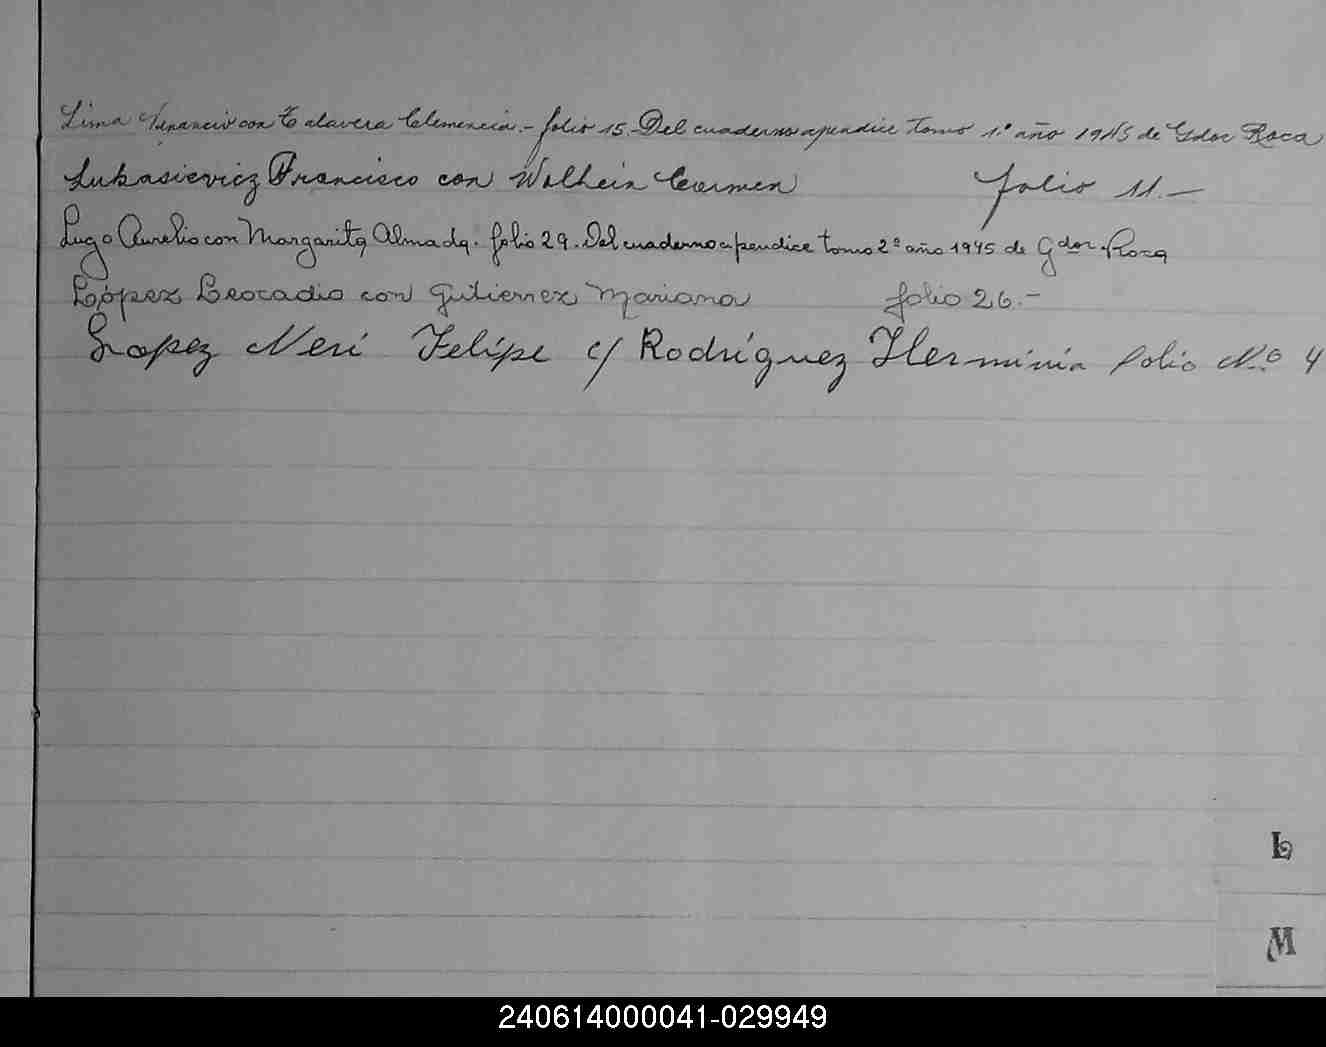 Lima Venancio con Talavera Clemencia.- folio 15.- Del cuaderno apendice tomo 1º año 1945 de Gdor Roca
Lukasievicz Francisco con Wolhein Carmen folio 11.-
Lugo Aurelio con Margarita Almada. folio 29. Del cuaderno apendice tomo 2º año 1945 de Gdor. Roca
López Leocadio con Gutierrez Mariana folio 26.-
Lopez Neri Felipe c/ Rodríguez Herminia folio Nº 4
L
M
240614000041-029949